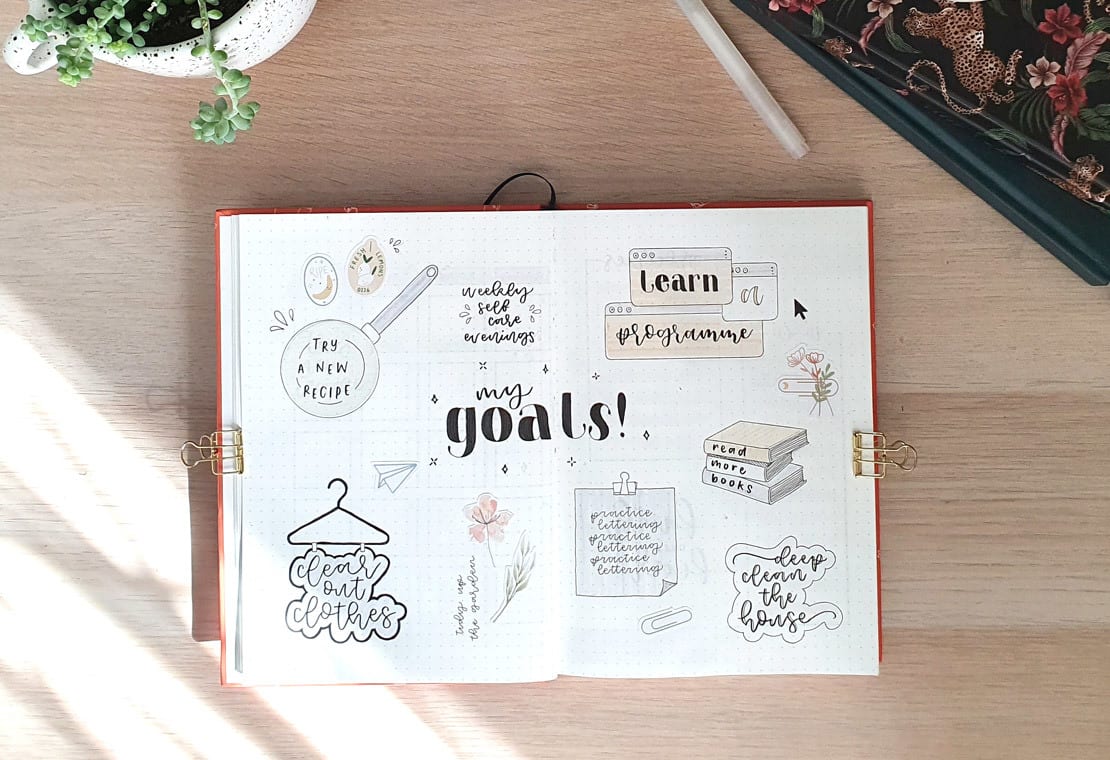 RIPE
FRESH LEMONS
TRY
A NEW
RECIPE
weekly
self
care
evenings
Learn
a
programme
my
goals!
read
more
books
clear
out
clothes
tidy up
the garden
practice
lettering
practice
lettering
practice
lettering
deep
clean
the
house